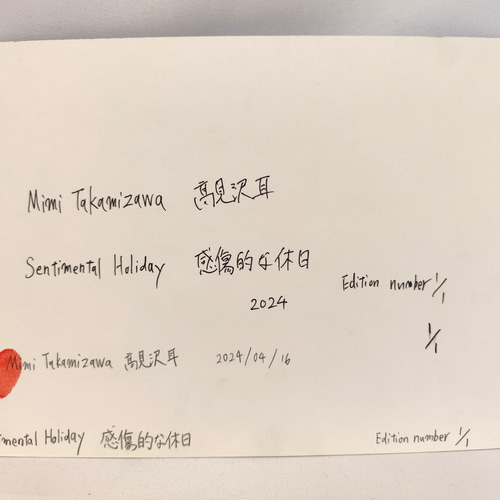 Mimi Takamizawa 高見沢耳
Sentimental Holiday 感傷的な休日
2024
Edition number 1/1
1/1
Mimi Takamizawa 高見沢耳 2024/04/16
imental Holiday 感傷的な休日 Edition number 1/1